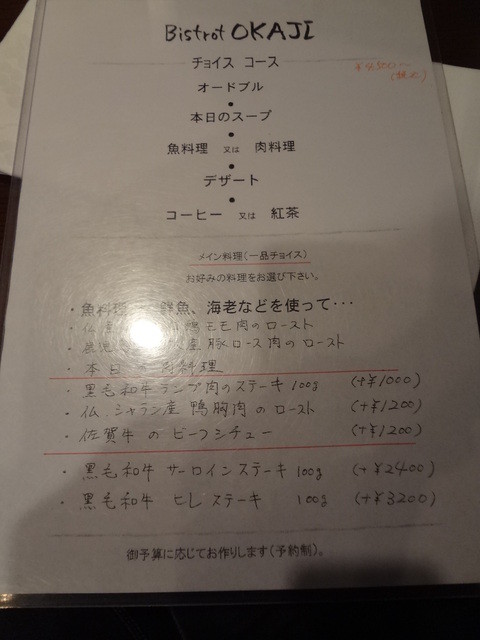 Bistrot OKAJI
チョイス コース
(税込)
オードブル
●
本日のスープ
●
魚料理 又は 肉料理
●
デザート
●
コーヒー 又は 紅茶
メイン料理(一品チョイス)
お好みの料理をお選び下さい。
・魚料理 鮮魚、海老などを使って・・・
・仏 鴨モモ肉のロースト
・鹿児 産 豚ロース肉のロースト
・本日 料理
・黒毛和牛ランプ肉のステーキ 100g (+¥1000)
・仏.シャラン産 鴨胸肉のロースト (+¥1200)
・佐賀牛のビーフシチュー (+¥1200)
・黒毛和牛 サーロインステーキ 100g (+¥2400)
・黒毛和牛 ヒレステーキ 100g (+¥3200)
御予算に応じてお作りします(予約制)。